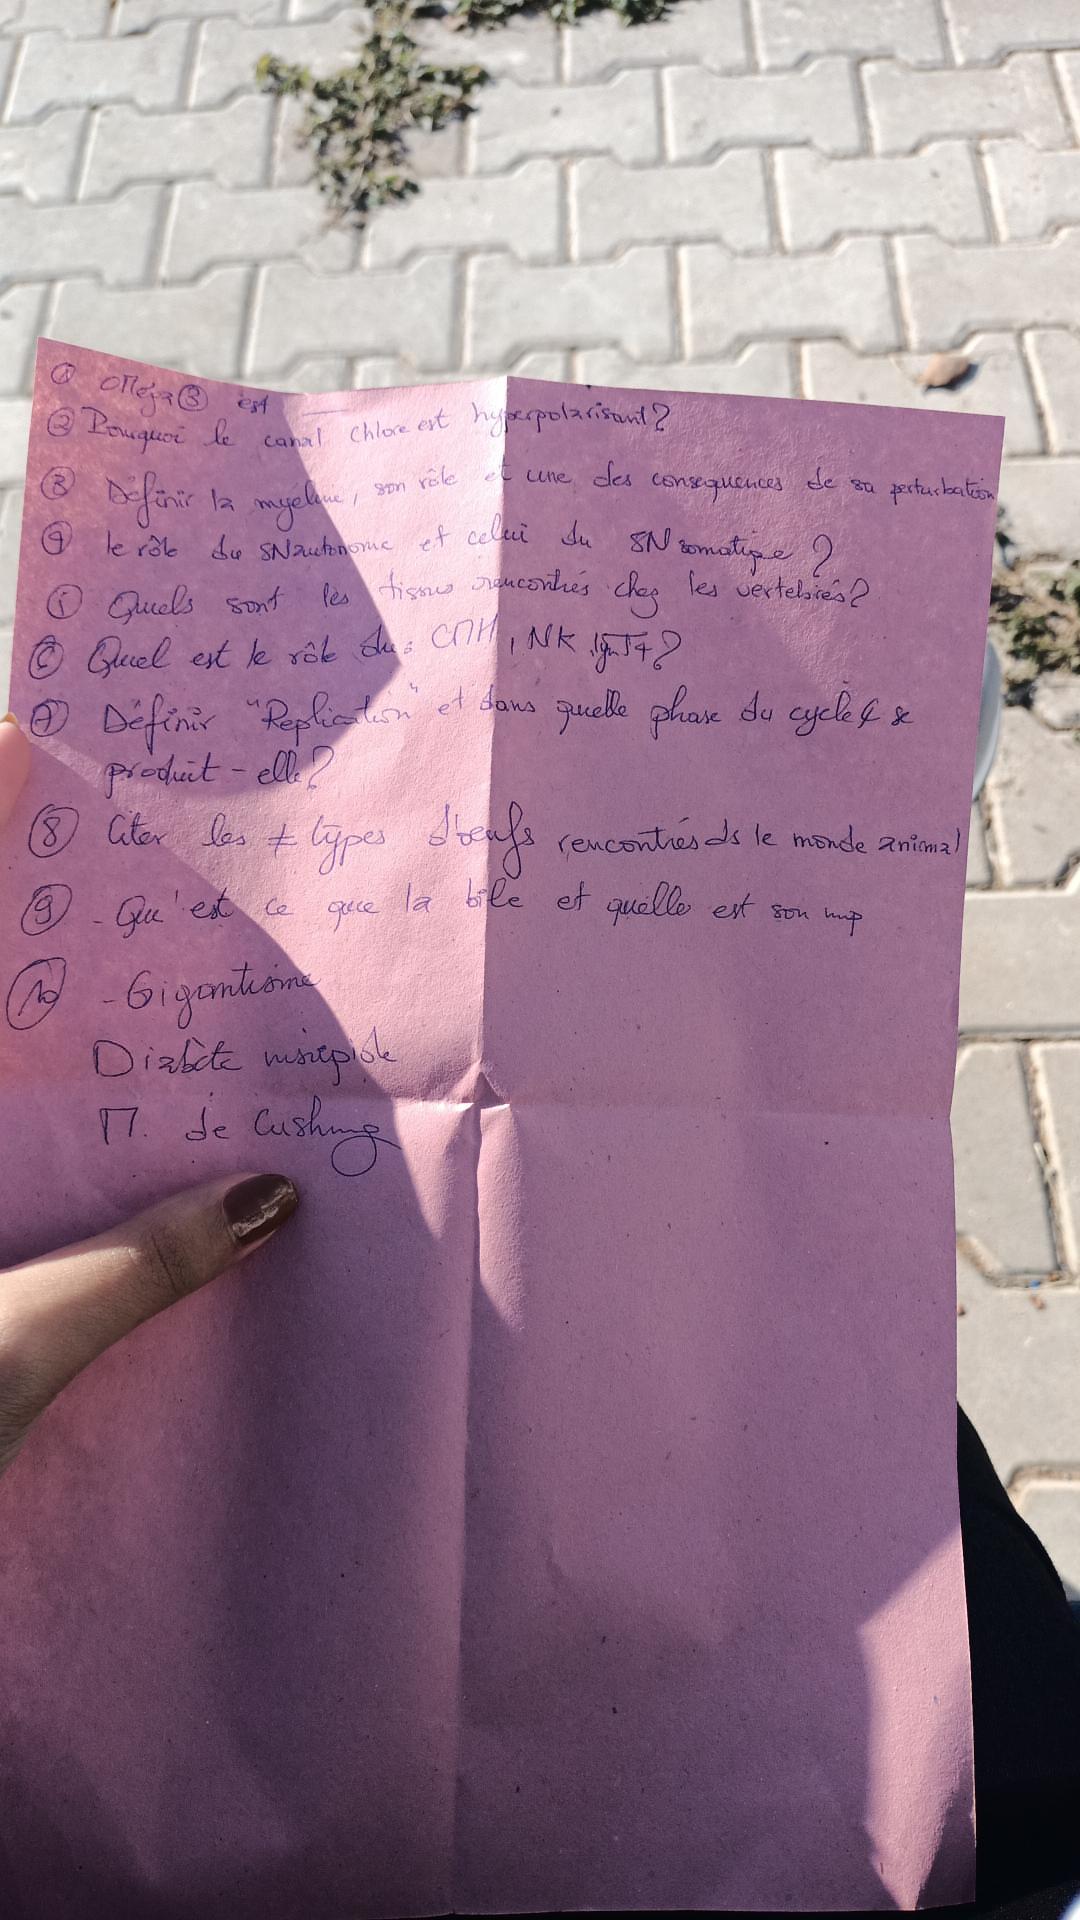 ① OMéga③ est __
② Pourquoi le canal chlore est hyperpolarisant?
③ Définir la myeline, son rôle et une des consequences de sa perturbation
④ le rôle du SN autonome et celui du SN somatique?
Quels sont les tissus rencontrés chez les vertebrés?
⑥ Quel est le rôle du: CMH, NK, lyT4?
⑦ Définir "Replication" et dans quelle phase du cycle ¢ se
produit-elle?
⑧ Citer les ≠ types d'œufs rencontrés ds le monde animal
⑨ -Qu'est ce que la bile et quelle est son
⑩ -Gigantisme
Diabète insipide
M. de Cushing